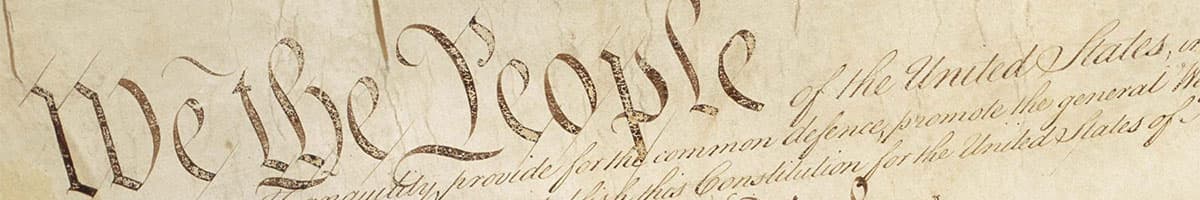 We the People of the United States,
provide for the common defence, promote the general
this Constitution for the United States of